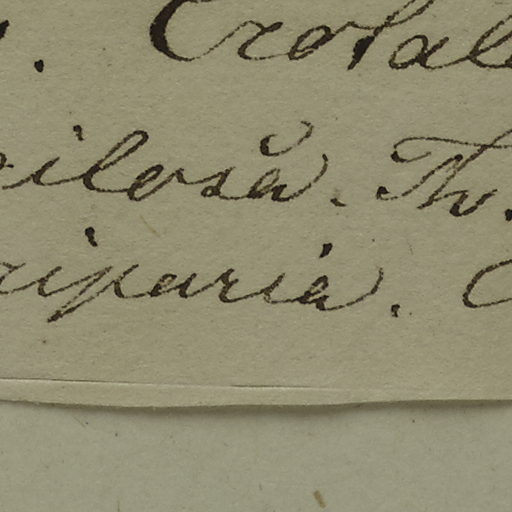 . Crotal
ilosa. Th.
riparia. C